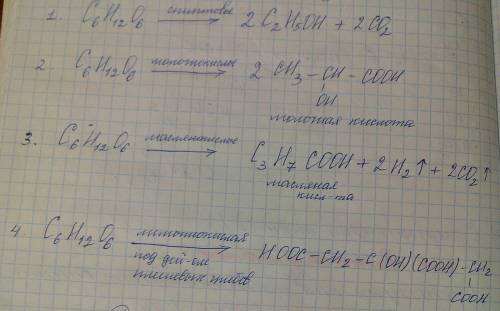 1. C₆H₁₂O₆ спиртовое → 2 C₂H₅OH + 2CO₂
2 C₆H₁₂O₆ молочнокислое → 2 CH₃ – CH – COOH
OH
молочная кислота
3. C₆H₁₂O₆ маслянокислое → C₃H₇ COOH + 2H₂↑ + 2CO₂↑
масляная
кисл-та
4. C₆H₁₂O₆ лимоннокислая → HOOC – CH₂ – C(OH)(COOH) – CH₂
под дей-ем
плесневых грибов
COOH